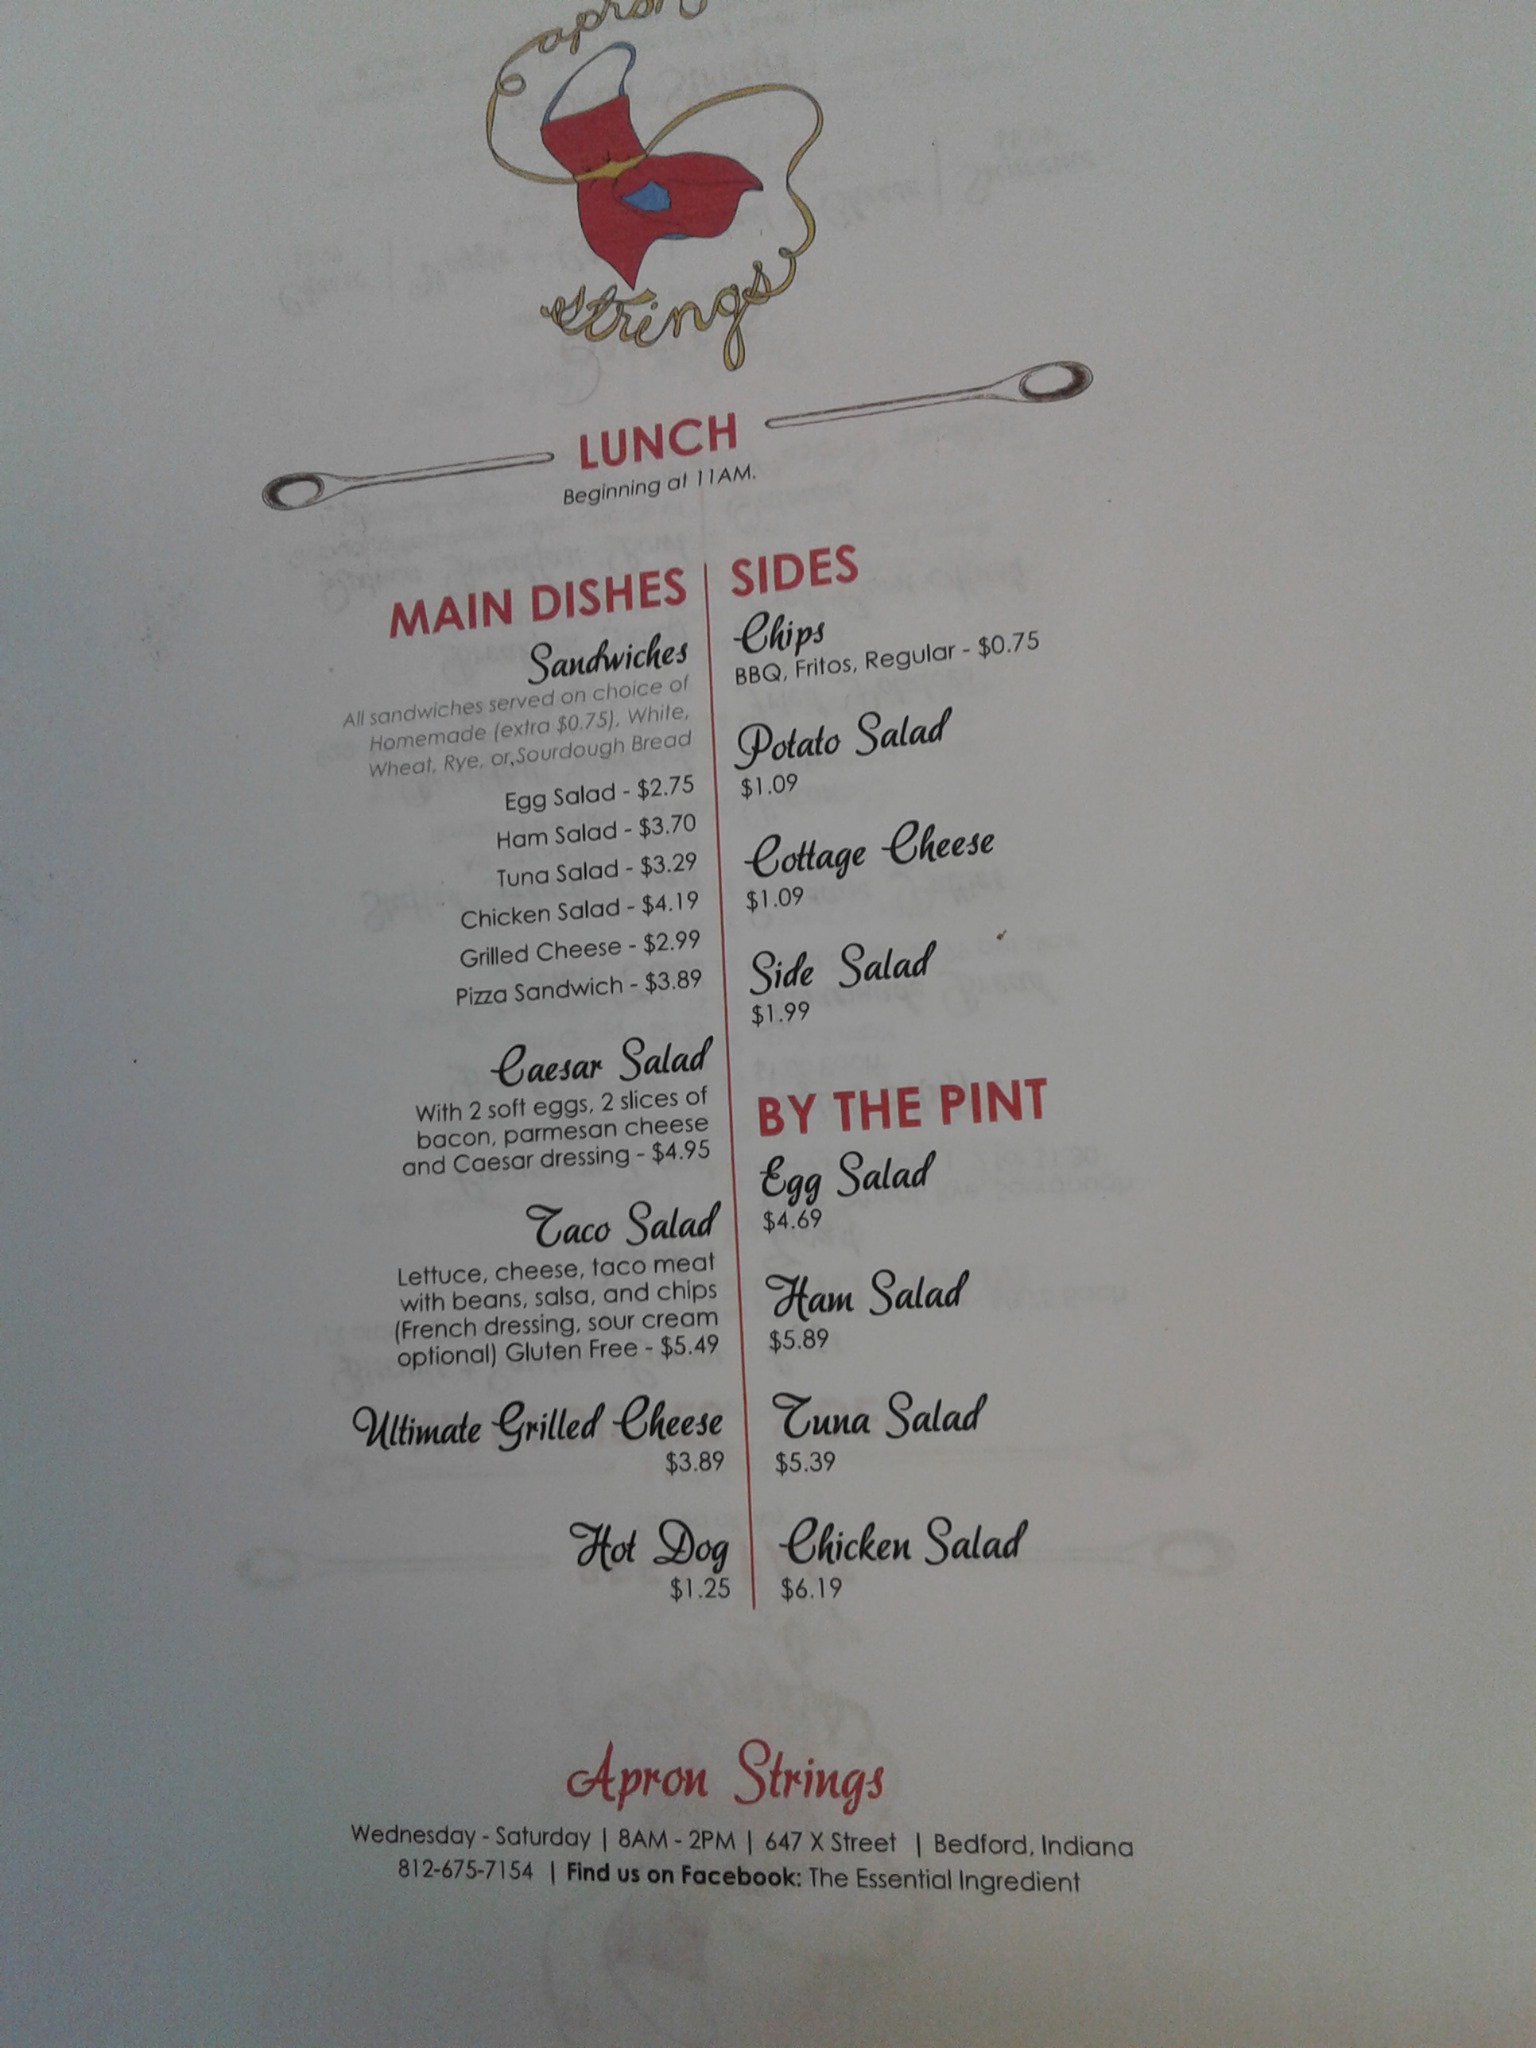 apron
strings
LUNCH
Beginning at 11AM.
MAIN DISHES
Sandwiches
All sandwiches served on choice of
Homemade (extra $0.75), White,
Wheat, Rye, or Sourdough Bread
Egg Salad - $2.75
Ham Salad - $3.70
Tuna Salad - $3.29
Chicken Salad - $4.19
Grilled Cheese - $2.99
Pizza Sandwich - $3.89
Caesar Salad
With 2 soft eggs, 2 slices of
bacon, parmesan cheese
and Caesar dressing - $4.95
Taco Salad
Lettuce, cheese, taco meat
with beans, salsa, and chips
(French dressing, sour cream
optional) Gluten Free - $5.49
Ultimate Grilled Cheese
$3.89
Hot Dog
$1.25
SIDES
Chips
BBQ, Fritos, Regular - $0.75
Potato Salad
$1.09
Cottage Cheese
$1.09
Side Salad
$1.99
BY THE PINT
Egg Salad
$4.69
Ham Salad
$5.89
Tuna Salad
$5.39
Chicken Salad
$6.19
Apron Strings
Wednesday - Saturday | 8AM - 2PM | 647 X Street | Bedford, Indiana
812-675-7154 | Find us on Facebook: The Essential Ingredient